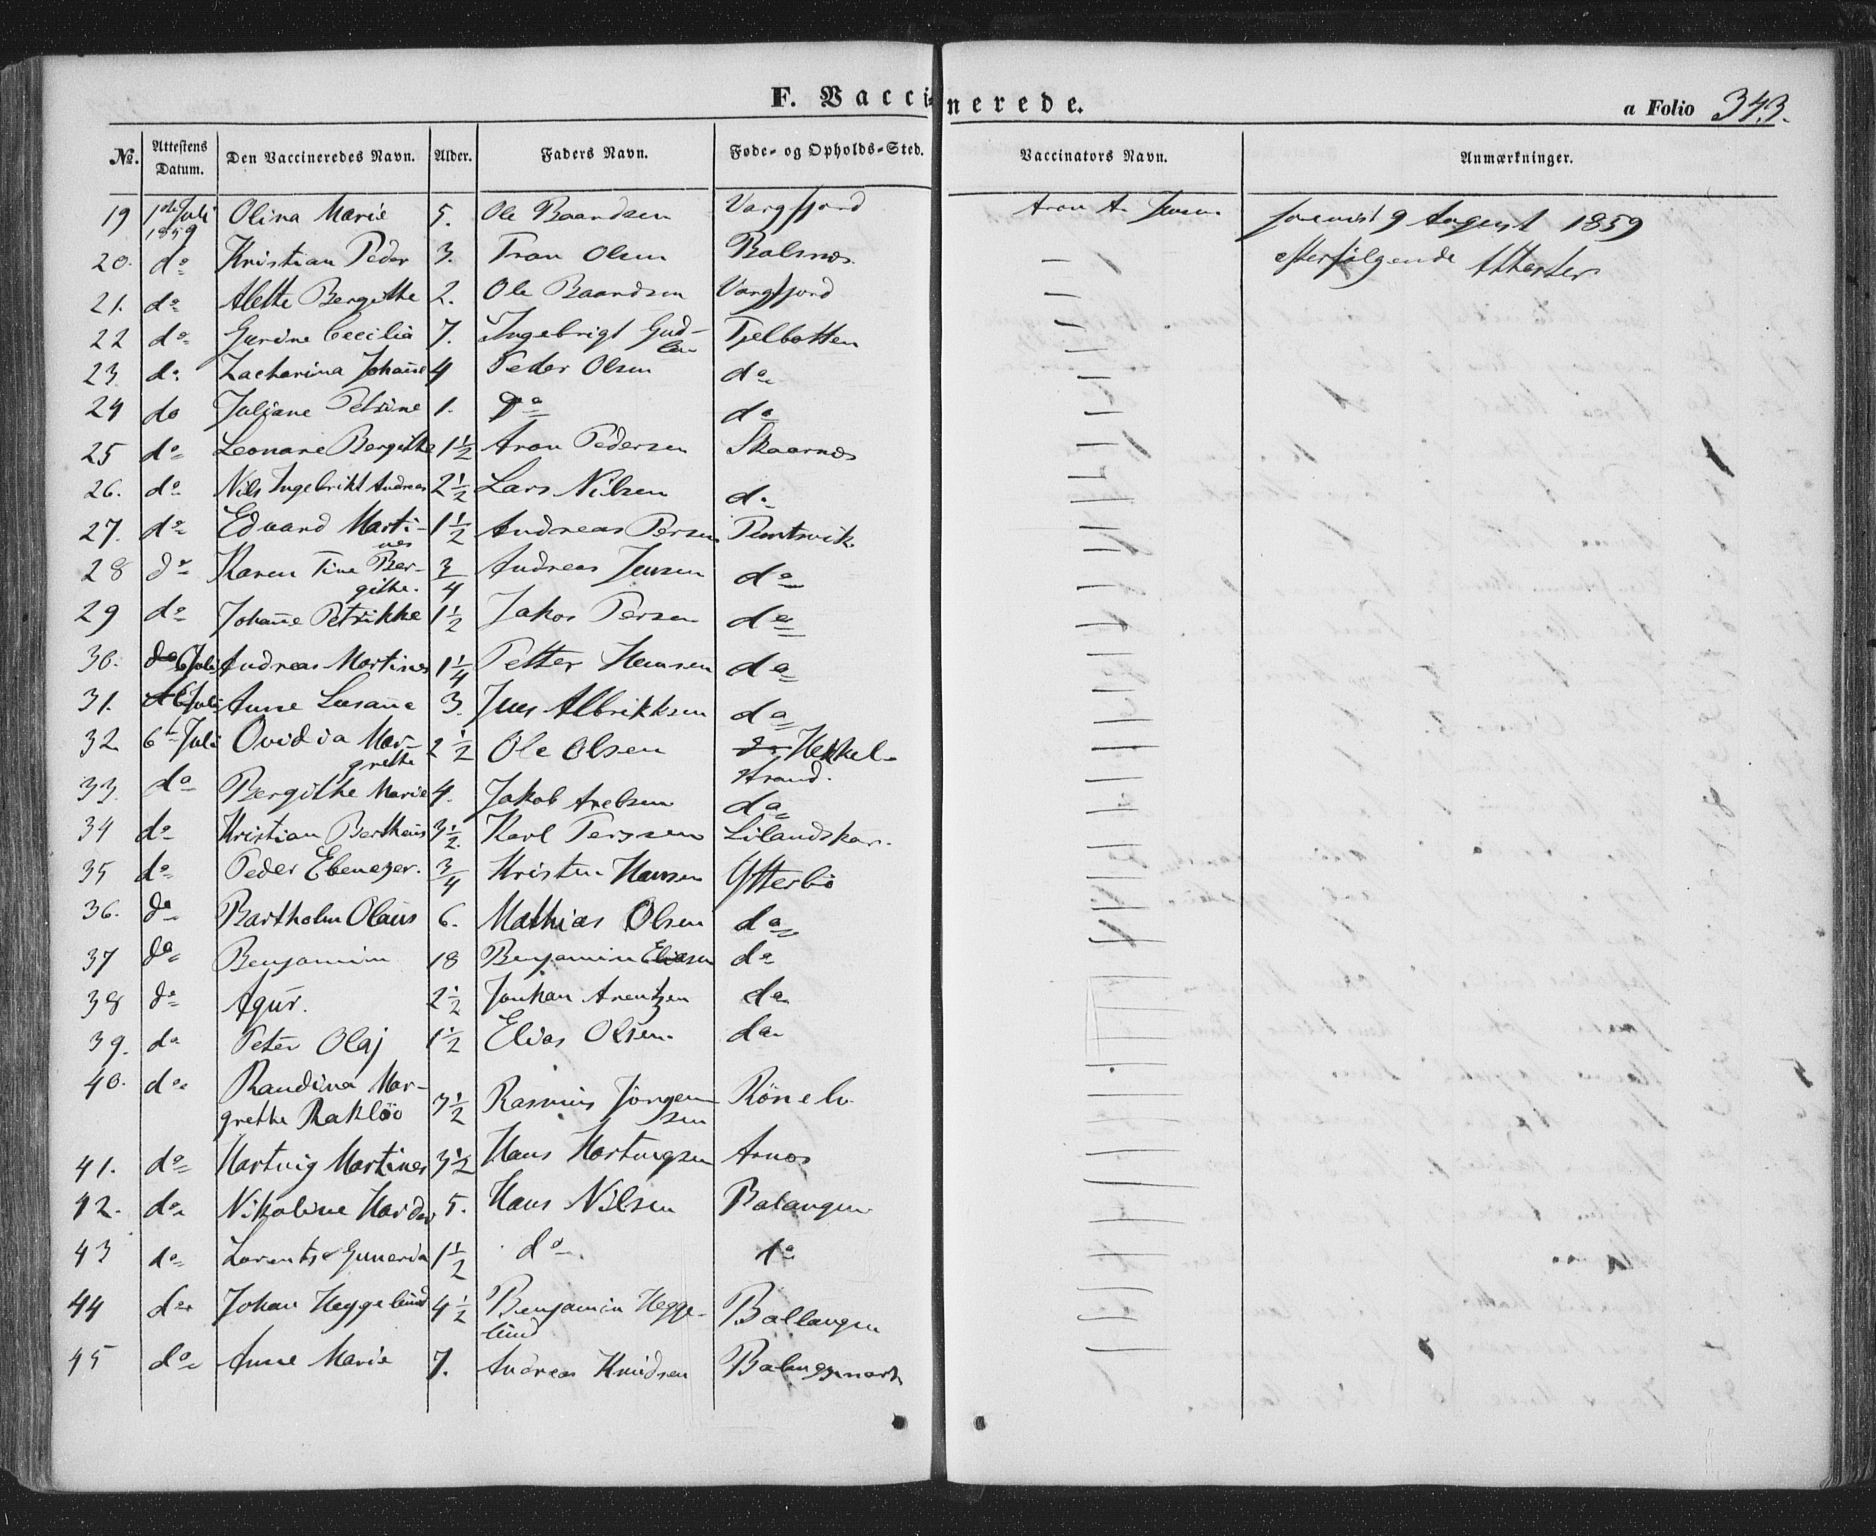 F. Vaccinerede.
a Folio 343.
No. Attestens Datum. Den Vaccineredes Navn. Alder. Faders Navn. Føde- og Opholds-Sted. Vaccinators Navn. Anmærkninger.
19 1ste Juli 1859 Olina Marie 5. Ole Baardsen Vargfjord Aron A. Jensen 9 August 1859
20. do Kristian Peder 3. Tron Olsen Balsnes — efterfølgende Attester
21. do Alette Bergitte 2. Ole Baardsen Vargfjord —
22 do Gurine Cecilia 7. Ingebrigt Gud- Fjelbotten —
23. do Zacharina Johanne 4 Peder Olsen do —
24 do Juliane Petrine 1. do do —
25 do Leonare Bergithe 1 1/2 Aron Pedersen Skaarnes —
26. do Nils Ingebrikt Andreas 2 1/2 Lars Nilsen do —
27. do Edvard Marti-
nes 1 1/2 Andreas Persen —
28 do Karen Tine Ber-
githe. 3/4 Andreas Jensen do —
29 do Johanne Petrikke 1 1/2 Jakob Persen do —
30. 6 Juli Andreas Martines 1 1/4 Petter Hansen do —
31. 6 Juli Anne Susanne 3. Jens Albrikksen do —
32 6te Juli Ovidia Mar-
grethe 2 1/2 Ole Olsen Hekkel-
strand. —
33. do Bergithe Marie 4. Jakob Axelsen do —
34 do Kristian Bertheus 3 1/2 Karl Perssen —
35 do Peder Ebenezer. 3/4 Kristen Hansen Ytterbö —
36. do Bartholm Olaus 6. Mathias Olsen do —
37 do Benjamin 18 Benjamin Eliasen do —
38 do Agur. 2 1/2 Johan Arentzen do —
39. do Peter Olaj 1 1/2 Elias Olsen do —
40. do Randina Mar-
grethe 3 1/2 Rasmus Jörgen-
sen —
41. do Hartvig Martines 3 1/2 Hans Hartvigsen Arnes —
42. do Nikoline 5. Hans Nilsen Balangen —
43 do 1 1/2 do do —
44 do Johan Heggelund 4 1/2 Benjamin Hegge-
lund Ballangen —
45 do Anne Marie 7. Andreas Knudsen —